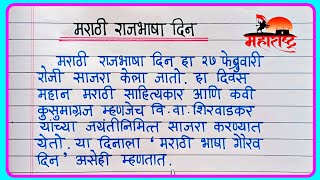 मराठी राजभाषा दिन
महाराष्ट्र
मराठी राजभाषा दिन हा २७ फेब्रुवारी
रोजी साजरा केला जातो. हा दिवस
महान मराठी साहित्यकार आणि कवी
कुसुमाग्रज म्हणजेच वि. वा. शिरवाडकर
यांच्या जयंतीनिमित्त साजरा करण्यात
येतो. या दिनाला ' मराठी भाषा गौरव
दिन ' असेही म्हणतात.